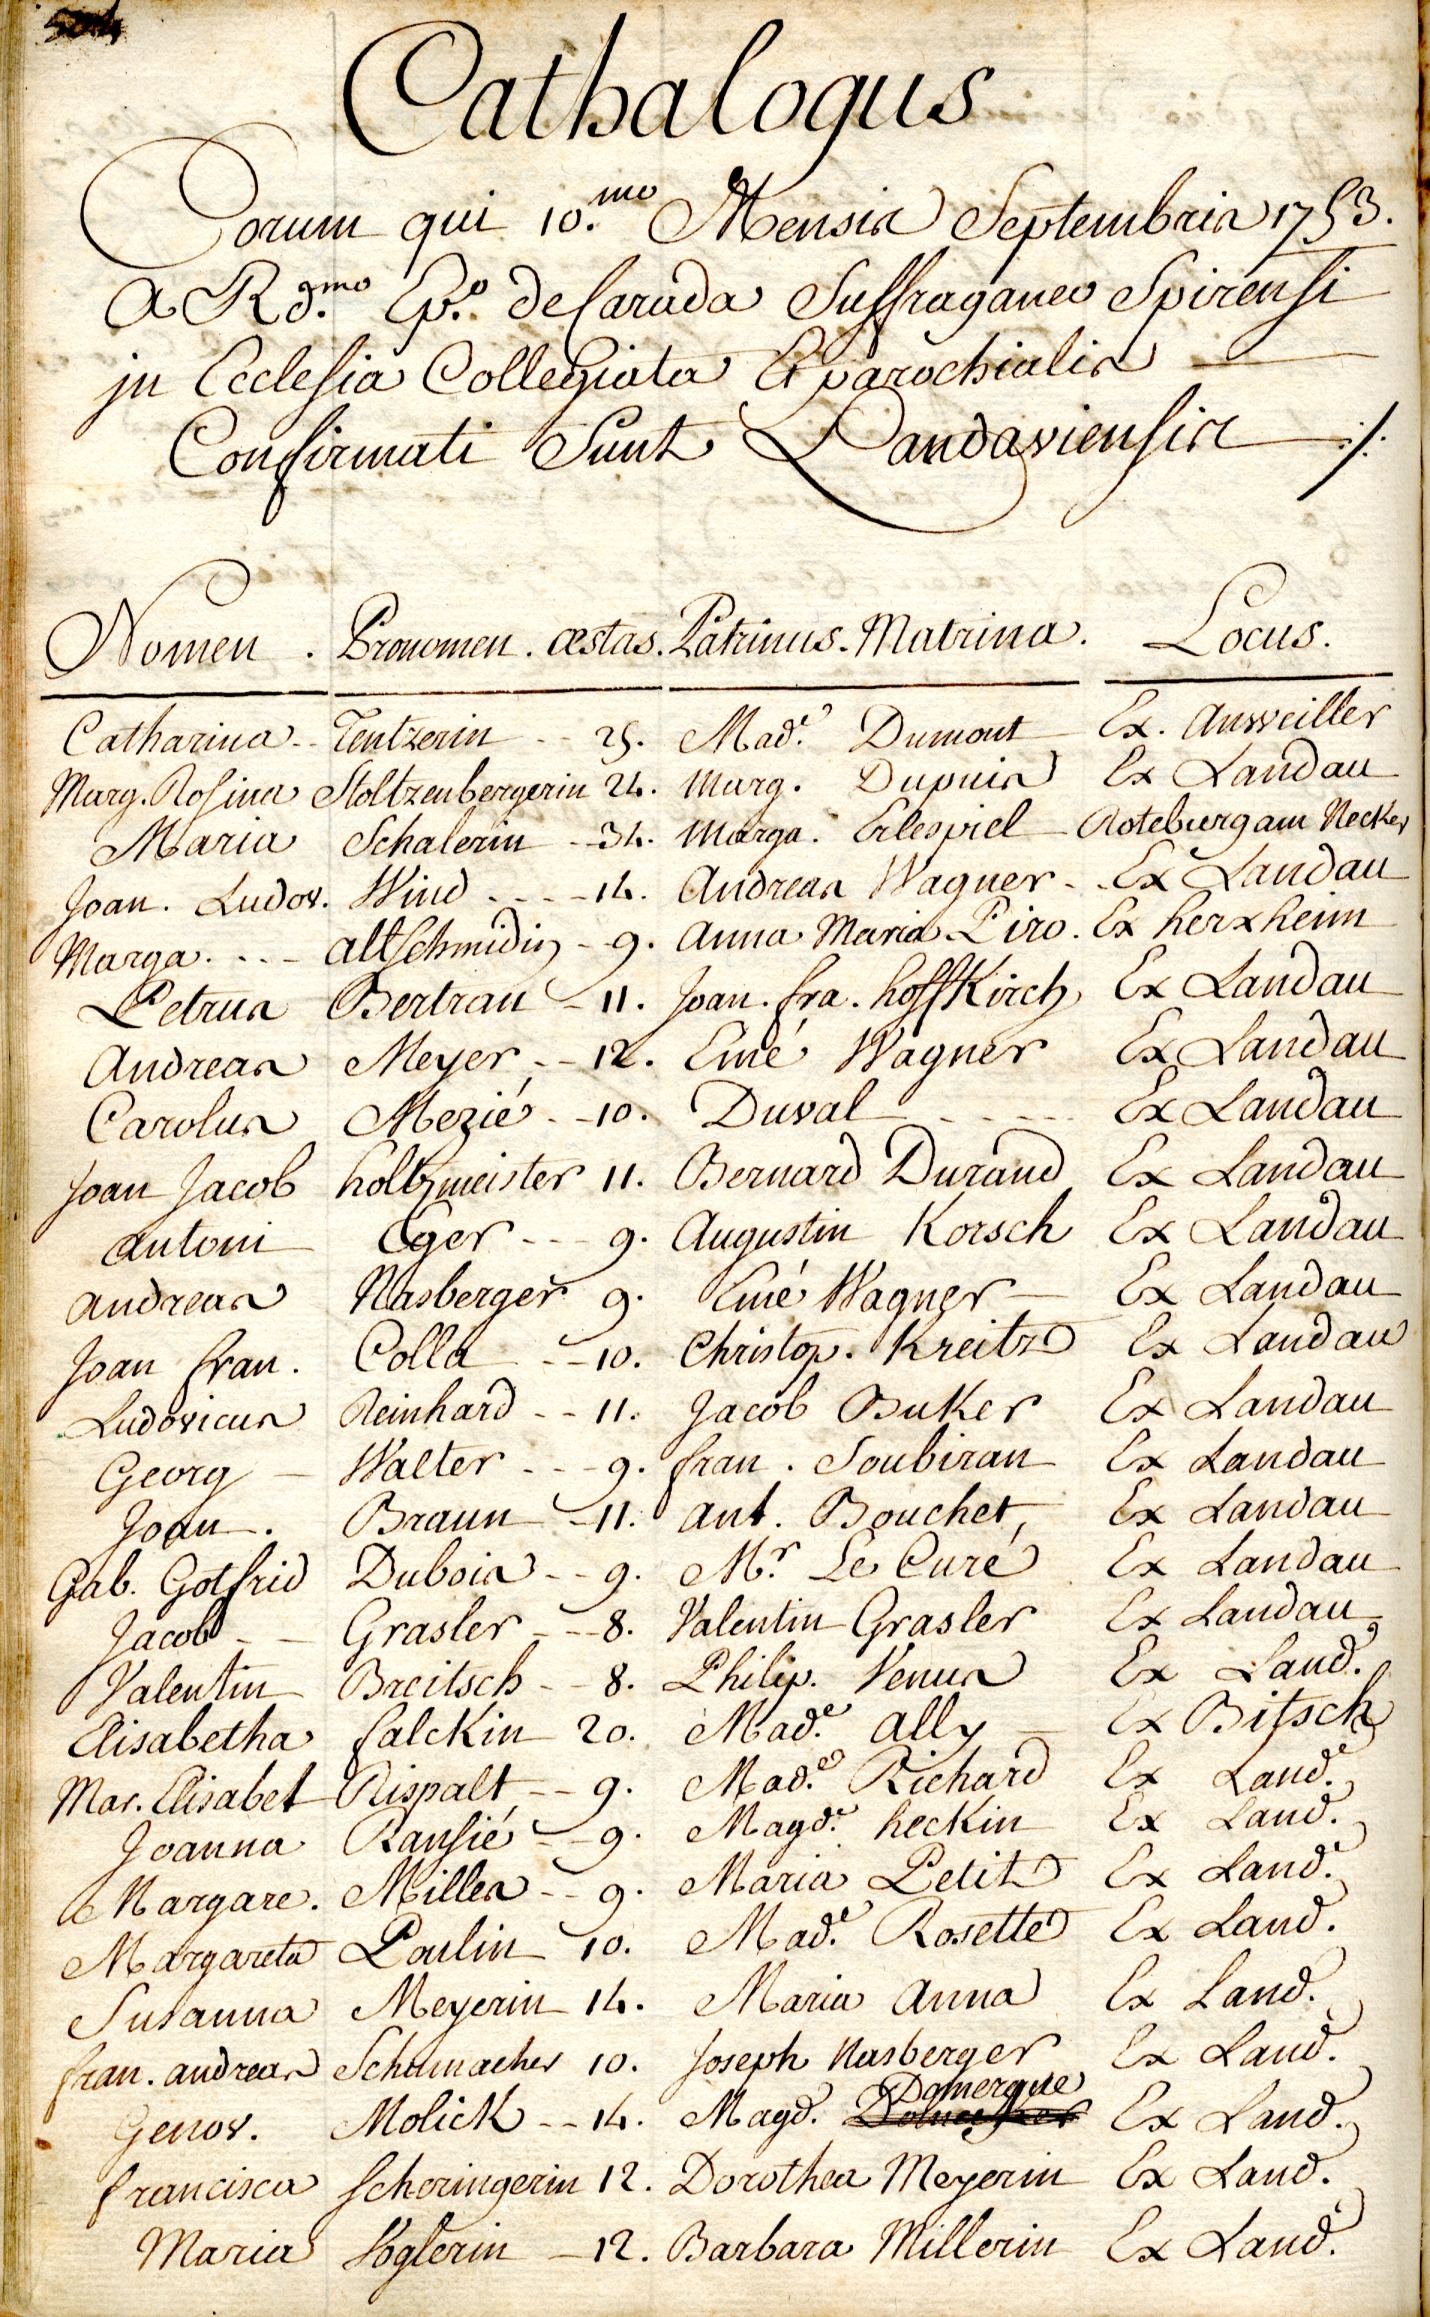 Cathalogus
Eorum qui 10.mo Mensis Septembris 1753.
A Rd.mo Ep.o de Carada Suffraganeo Spirensi
in Ecclesia Collegiata Et parochialis
Confirmati Sunt Landaviensis ./.
Nomen. Pronomen. æstas. Patrinus. Matrina. Locus.
Catharina -- Tentzerin -- 25. Mad.e Dumont Ex. Anweiller
Marg. Rosina Stoltzenbergerin 24. Marg. Dupuis Ex Landau
Maria Schalerin -- 34. Marga. Erlespiel Roteburg am Necker
Joan. Ludov. Wind ---- 14. Andreas Wagner -- Ex Landau
Marga. --- altSchmidin - 9. Anna Maria Piro. Ex herxheim
Petrus Bertran - 11. Joan. fra. hoffKirch Ex Landau
Andreas Meyer -- 12. Emé Wagner Ex Landau
Carolus Mezié -- 10. Duval ---- Ex Landau
Joan Jacob holtzmeister 11. Bernard Durand Ex Landau
Antoni Eger --- 9. Augustin Korsch Ex Landau
Andreas Nasberger 9. Emé Wagner - Ex Landau
Joan fran. Colla -- 10. Christop. Kreitz Ex Landau
Ludovicus Reinhard -- 11. Jacob BuKer Ex Landau
Georg - Walter --- 9. fran. Soubiran Ex Landau
Joan. Braun - 11. Ant. Bouchet, Ex Landau
Gab. Gotfrid Dubois -- 9. M.r Le Curé Ex Landau
Jacob -- Grasler --- 8. Valentin Grasler Ex Landau
Valentin Breitsch -- 8. Philip. Venus Ex Land.
Elisabetha falckin 20. Mad.e Ally - Ex Bitsch
Mar. Elisabet Rispalt -- 9. Mad.e Richard Ex Land.
Joanna Ransié -- 9. Magd.e heckin Ex Land.
Margare. Milles -- 9. Maria Petit Ex Land.
Margareta Poulin 10. Mad.e Rosette Ex Land.
Susanna Meyerin 14. Maria Anna Ex Land.
fran. andreas Schumacher 10. Joseph Nasberger Ex Land.
Genov. Molick -- 14. Magd. Domergue Ex Land.
francisca Scheringerin 12. Dorothea Meyerin Ex Land.
Maria Voglerin - 12. Barbara Millerin Ex Land.